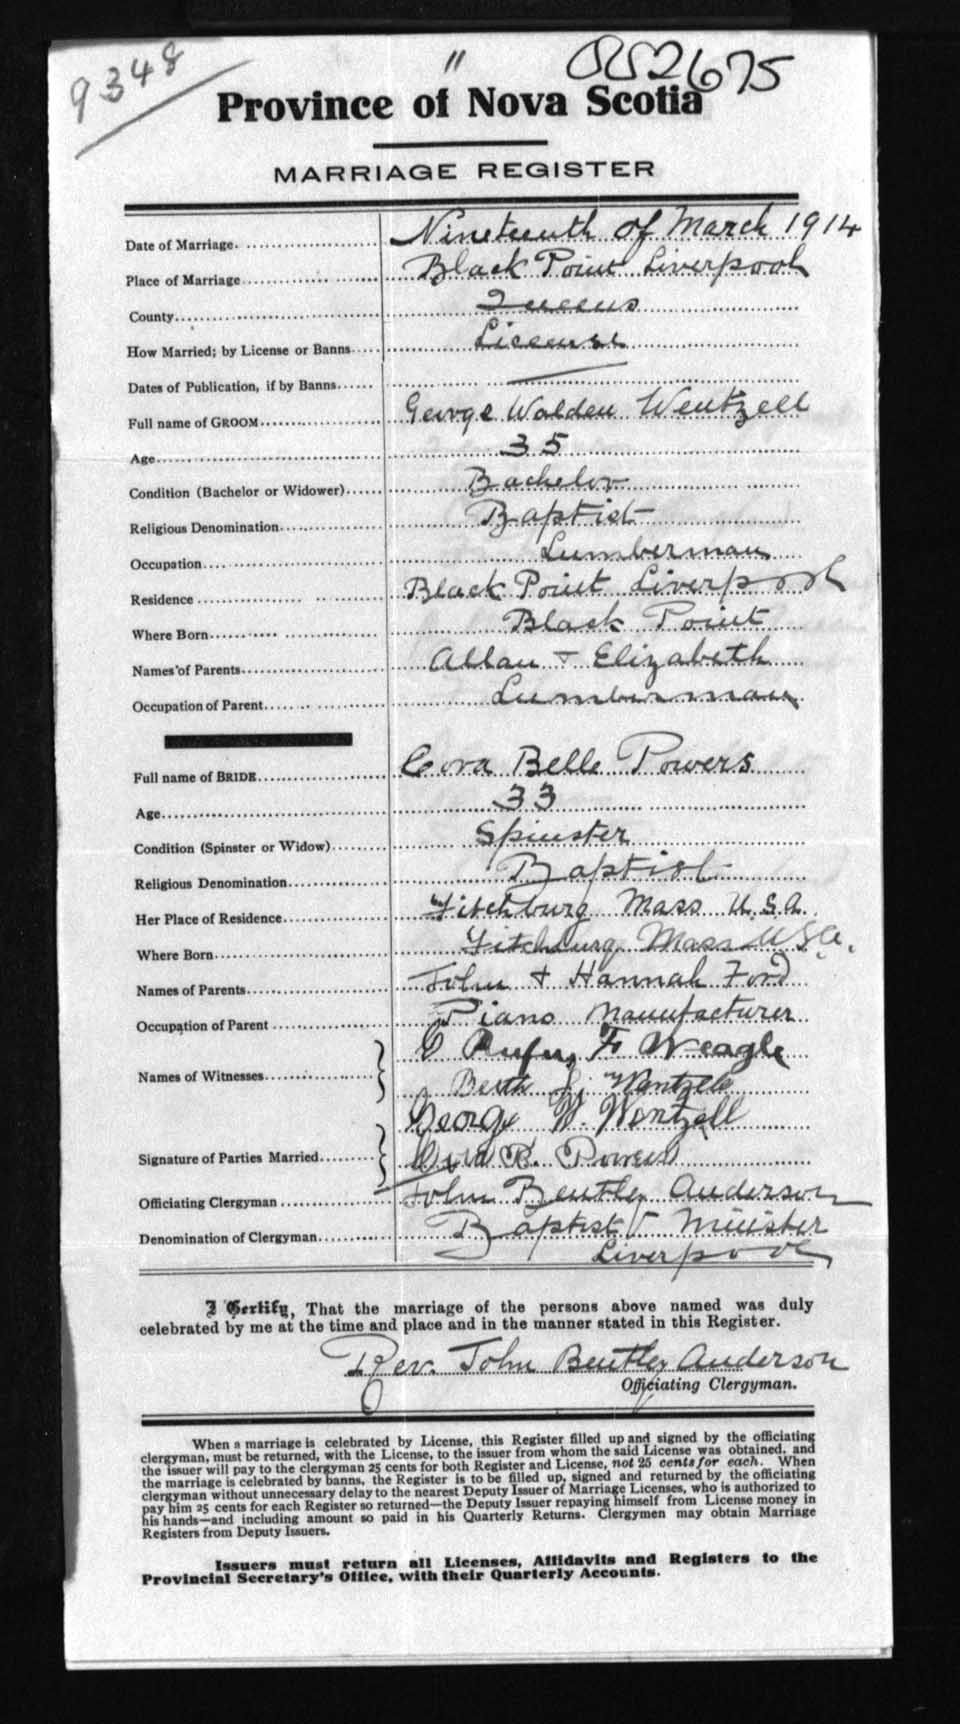 9348
"
002675
Province of Nova Scotia
MARRIAGE REGISTER
Date of Marriage. Nineteenth of March 1914
Place of Marriage Black Point Liverpool
County Queens
How Married; by License or Banns License
Dates of Publication, if by Banns
Full name of GROOM George Walden Wentzell
Age 35
Condition (Bachelor or Widower) Bachelor
Religious Denomination Baptist
Occupation Lumberman
Residence Black Point Liverpool
Where Born Black Point
Names of Parents Allan + Elizabeth
Occupation of Parent Lumberman
Full name of BRIDE Cora Belle Powers
Age 33
Condition (Spinster or Widow) Spinster
Religious Denomination Baptist
Her Place of Residence Fitchburg Mass U.S.A.
Where Born Fitchburg Mass USA.
Names of Parents John + Hannah Ford
Occupation of Parent Piano Manufacturer
Names of Witnesses F Weagle
Wentzell
George W. Wentzell
Signature of Parties Married Powers
Officiating Clergyman John Bentley Anderson
Denomination of Clergyman Baptist Minister
Liverpool
I Certify, That the marriage of the persons above named was duly
celebrated by me at the time and place and in the manner stated in this Register.
Rev. John Bentley Anderson
Officiating Clergyman.
When a marriage is celebrated by License, this Register filled up and signed by the officiating
clergyman, must be returned, with the License, to the issuer from whom the said License was obtained, and
the issuer will pay to the clergyman 25 cents for both Register and License, not 25 cents for each. When
the marriage is celebrated by banns, the Register is to be filled up, signed and returned by the officiating
clergyman without unnecessary delay to the nearest Deputy Issuer of Marriage Licenses, who is authorized to
pay him 25 cents for each Register so returned—the Deputy Issuer repaying himself from License money in
his hands—and including amount so paid in his Quarterly Returns. Clergymen may obtain Marriage
Registers from Deputy Issuers.
Issuers must return all Licenses, Affidavits and Registers to the
Provincial Secretary's Office, with their Quarterly Accounts.